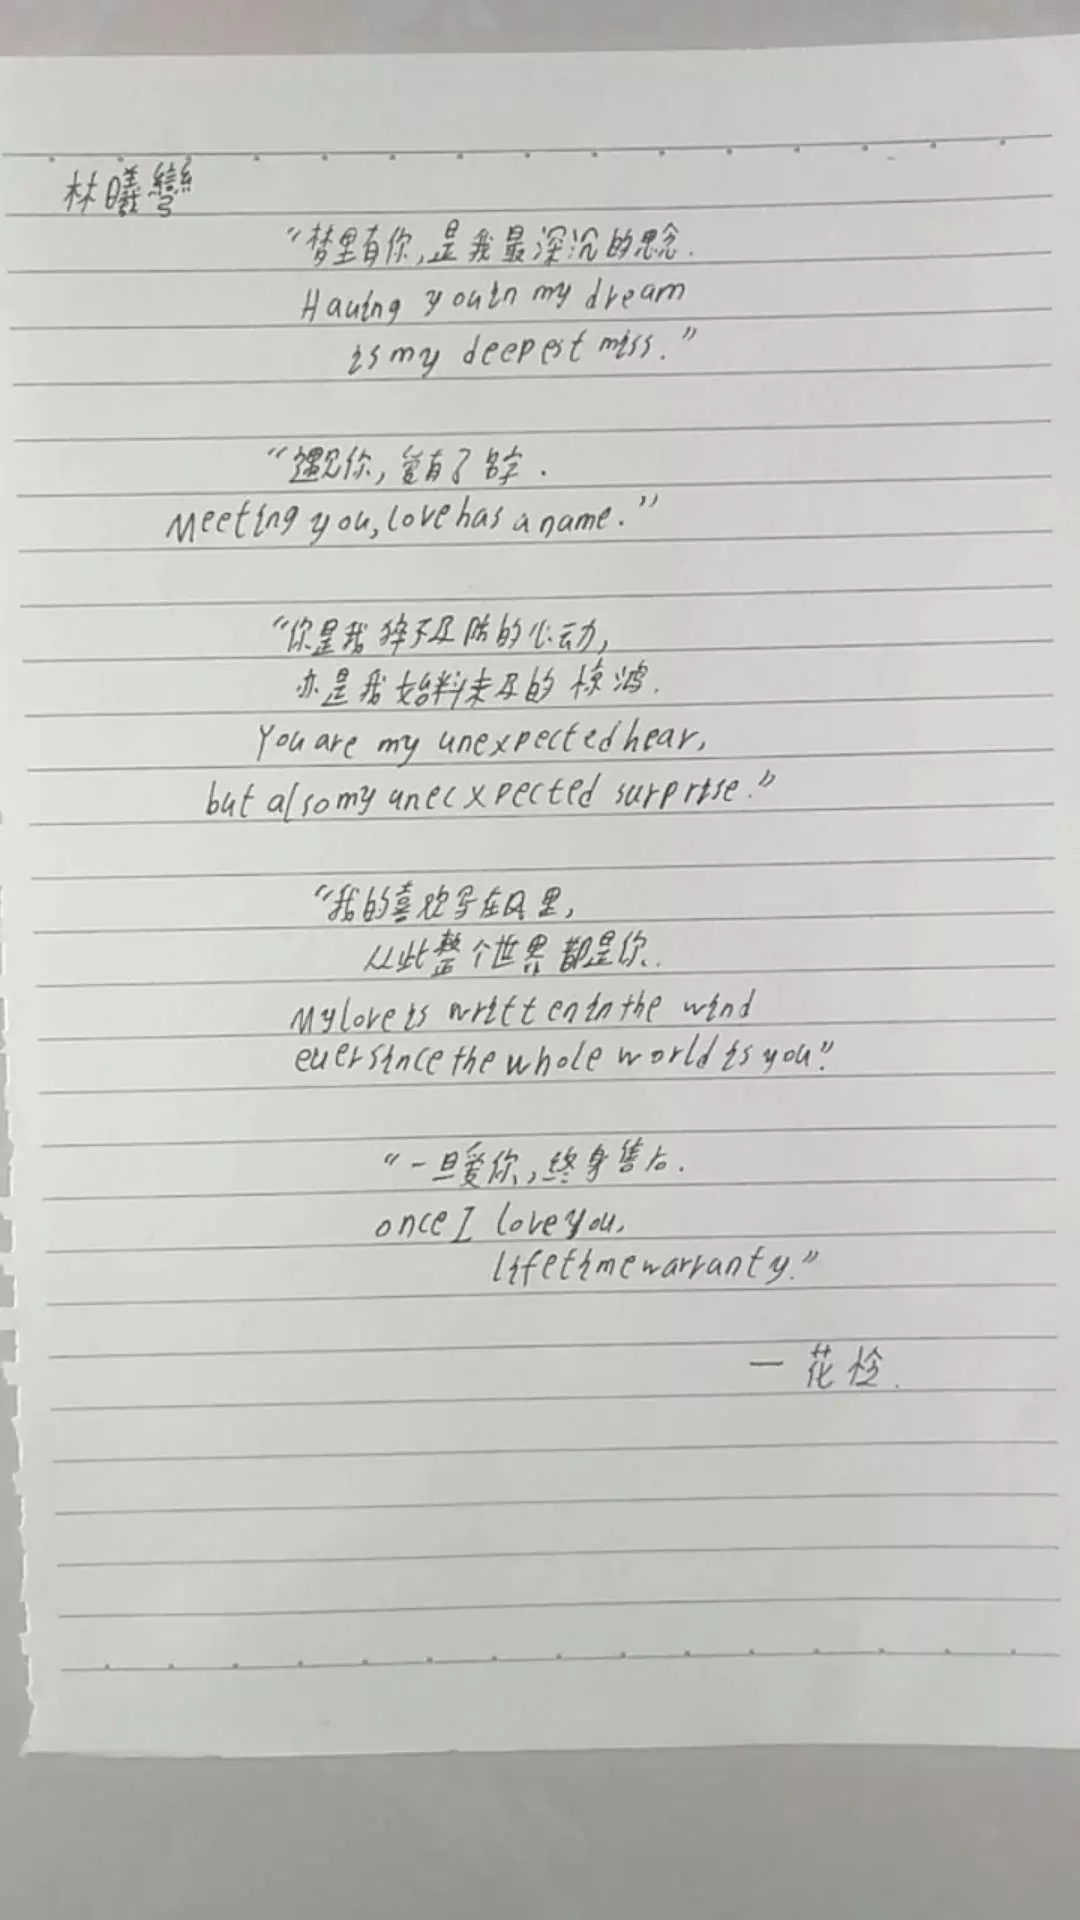 林曦彎
“梦里有你,是我最深沉的思念.
Having you in my dream
is my deepest miss.”
“遇见你,爱有了名字.
Meeting you, love has a name.”
“你是我猝不及防的心动,
亦是我始料未及的惊鸿.
You are my unexpected hear,
but also my unecxpected surprise.”
“我的喜欢写在风里,
从此整个世界都是你.
My love is written in the wind
ever since the whole world is you.”
“一旦爱你,终身售后.
once I love you,
lifetime warranty.”
一 花栓.